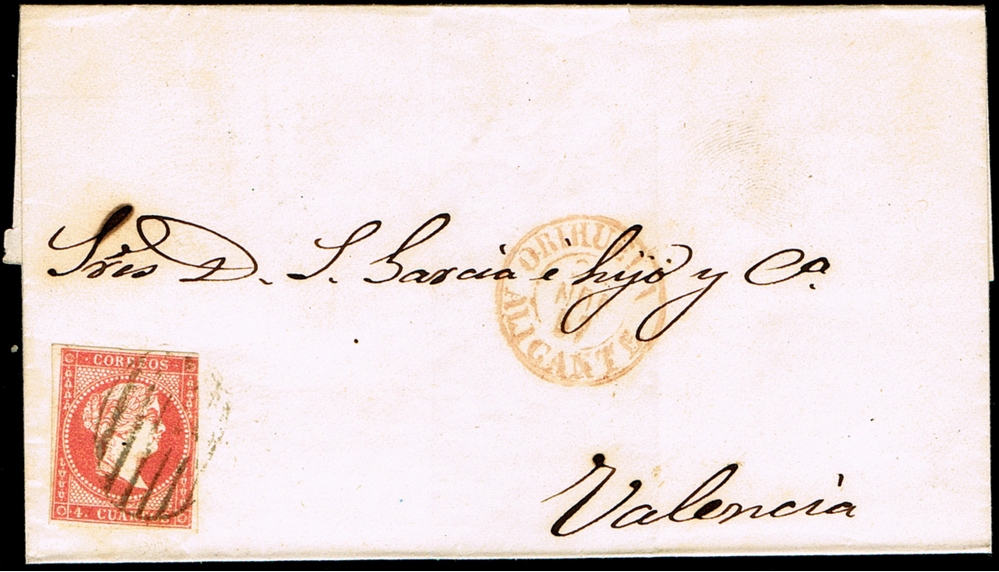 Sres D. S. Garcia é hijo y Ca.
ORIHUELA
ALICANTE
CORREOS
4. CUARTOS
Valencia